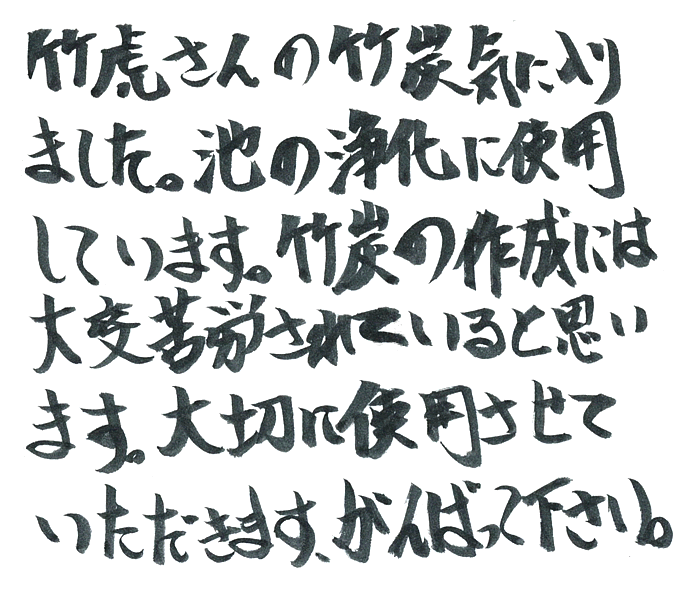 竹虎さんの竹炭気に入り
ました。池の浄化に使用
しています。竹炭の作成には
大変苦労されていると思い
ます。大切に使用させて
いただきます、がんばって下さい。